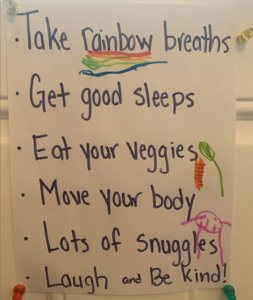 · Take rainbow breaths
· Get good sleeps
· Eat your veggies
· Move your body
· Lots of snuggles
· Laugh and Be kind!